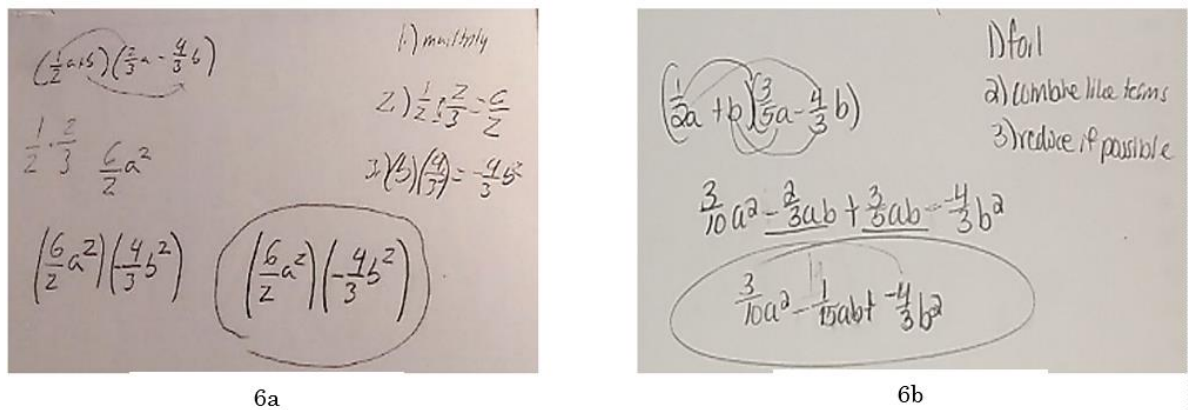 (1/2 a+b)(2/3 a - 4/3 b)
1.) multiply
2.) 1/2 · 2/3 = 6/2
1/2 · 2/3 6/2 a²
3.) (b)(4/3) = -4/3 b²
(6/2 a²)(-4/3 b²)
(6/2 a²)(-4/3 b²)
6a
1) foil
(1/2a + b)(3/5a - 4/3 b)
2) combine like terms
3) reduce if possible
3/10 a² - 2/3 ab + 3/5 ab - -4/3 b²
3/10 a² - 1/15 ab + -4/3 b²
6b